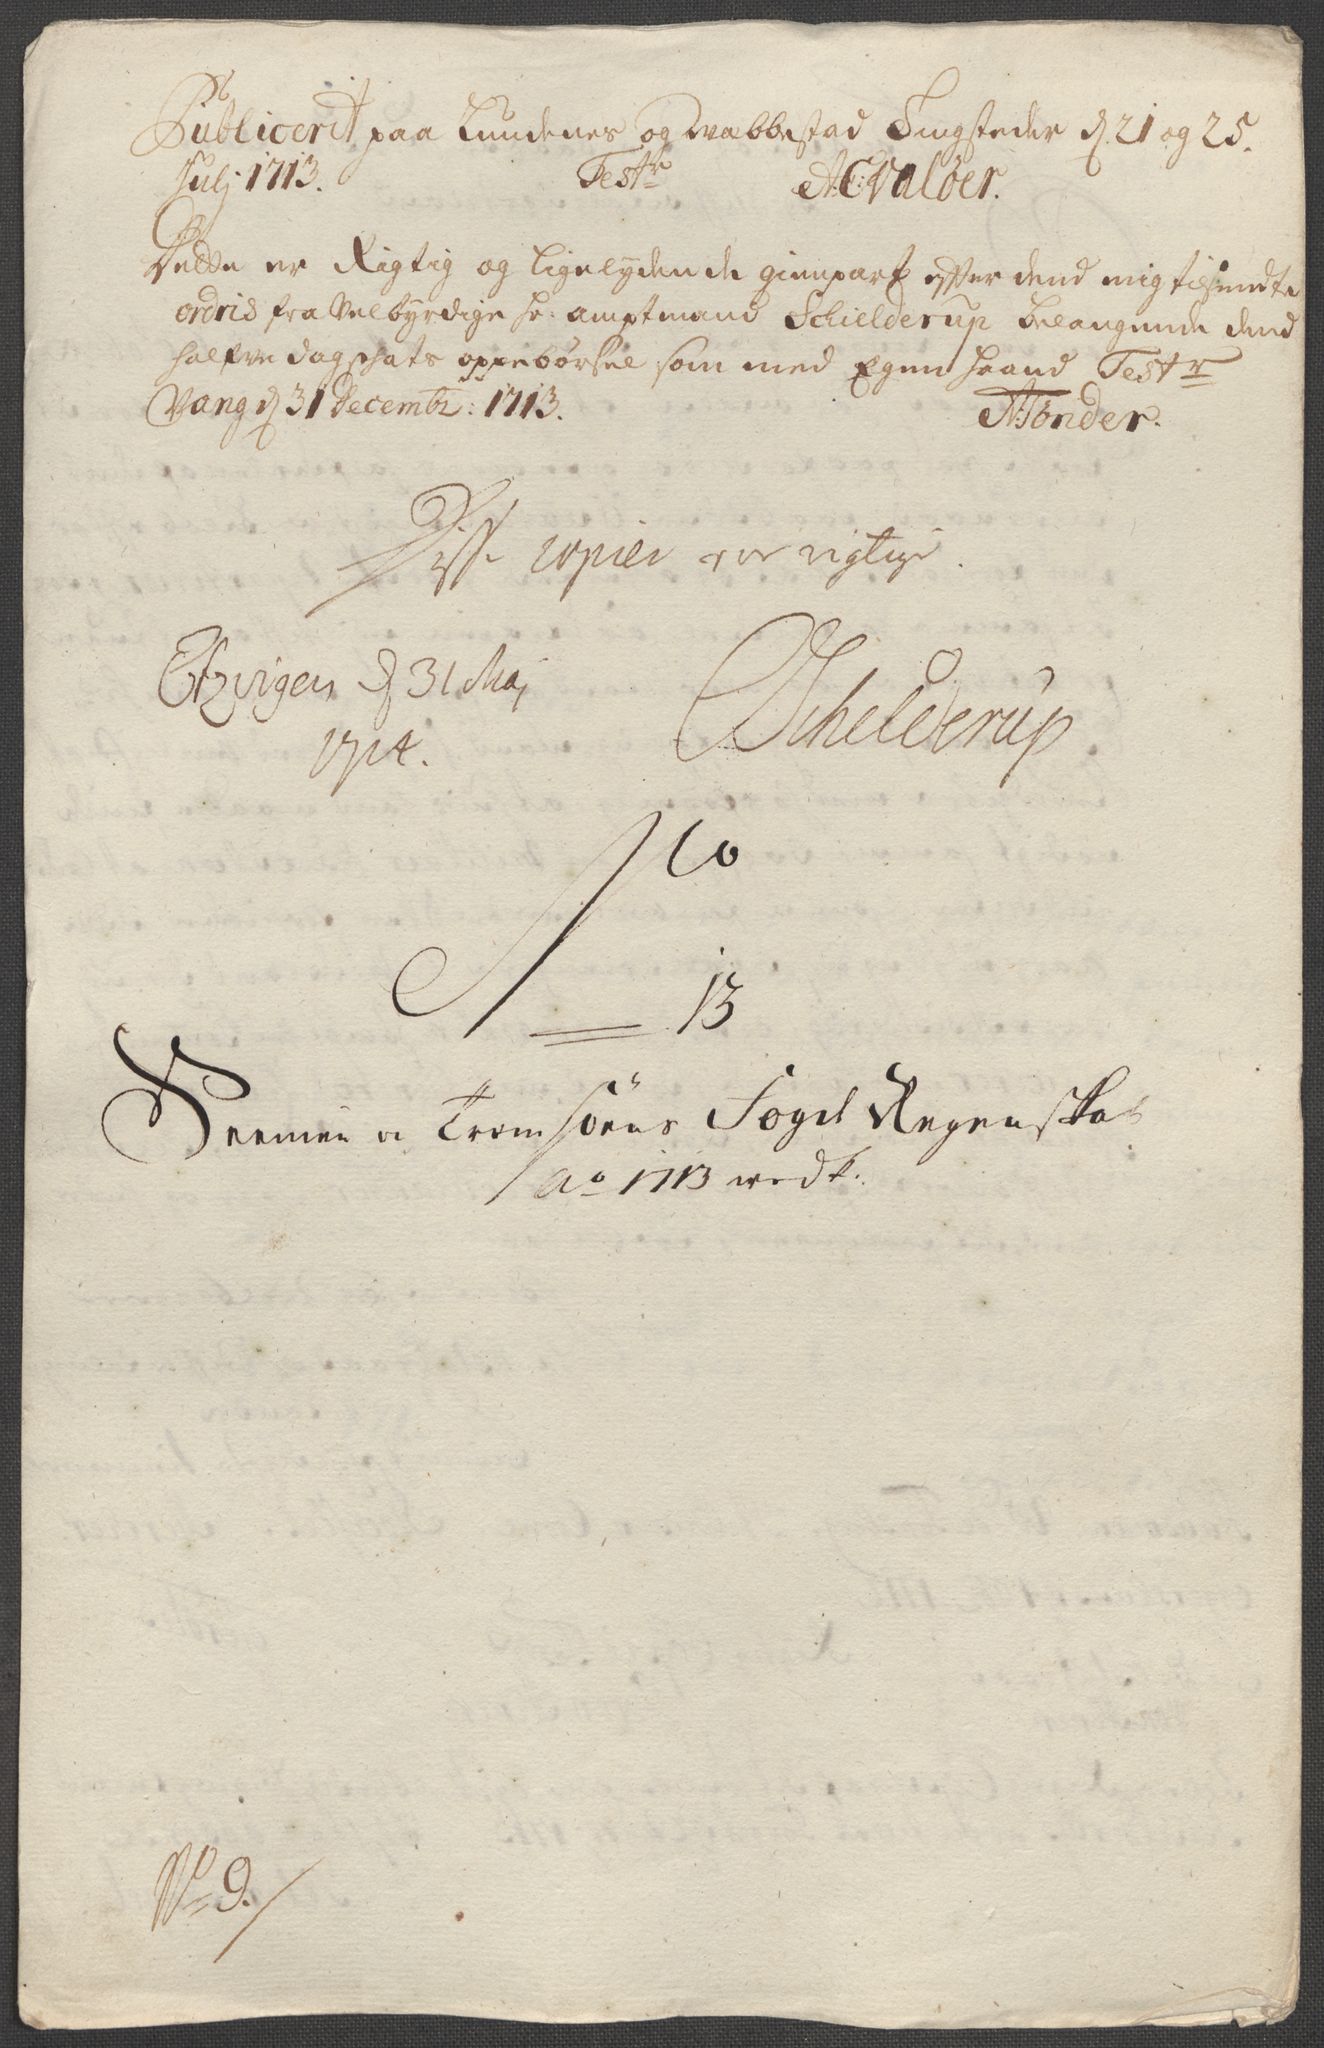 Publicerit paa Lundenes og Qvabbestad Tingsteder d. 21 og 25.
Julj 1713. Test: A:C: Valöer.
Dette er Rigtig og ligelydende gienpart efter dend mig tilsendte
ordris fra Velbyrdige hr: amptmand Schielderup belangende dend
halfve dagschats oppebörsel som med Egen haand Test:
Vang d 31 Decembr: 1713. A:Tönder.
Disse copier ere rigtige.
d 31 Maj Schelderup
1714.
No
13
Sennien og Tromsöens Fogd Regenskab
Ao 1713 vedk:
No 9.